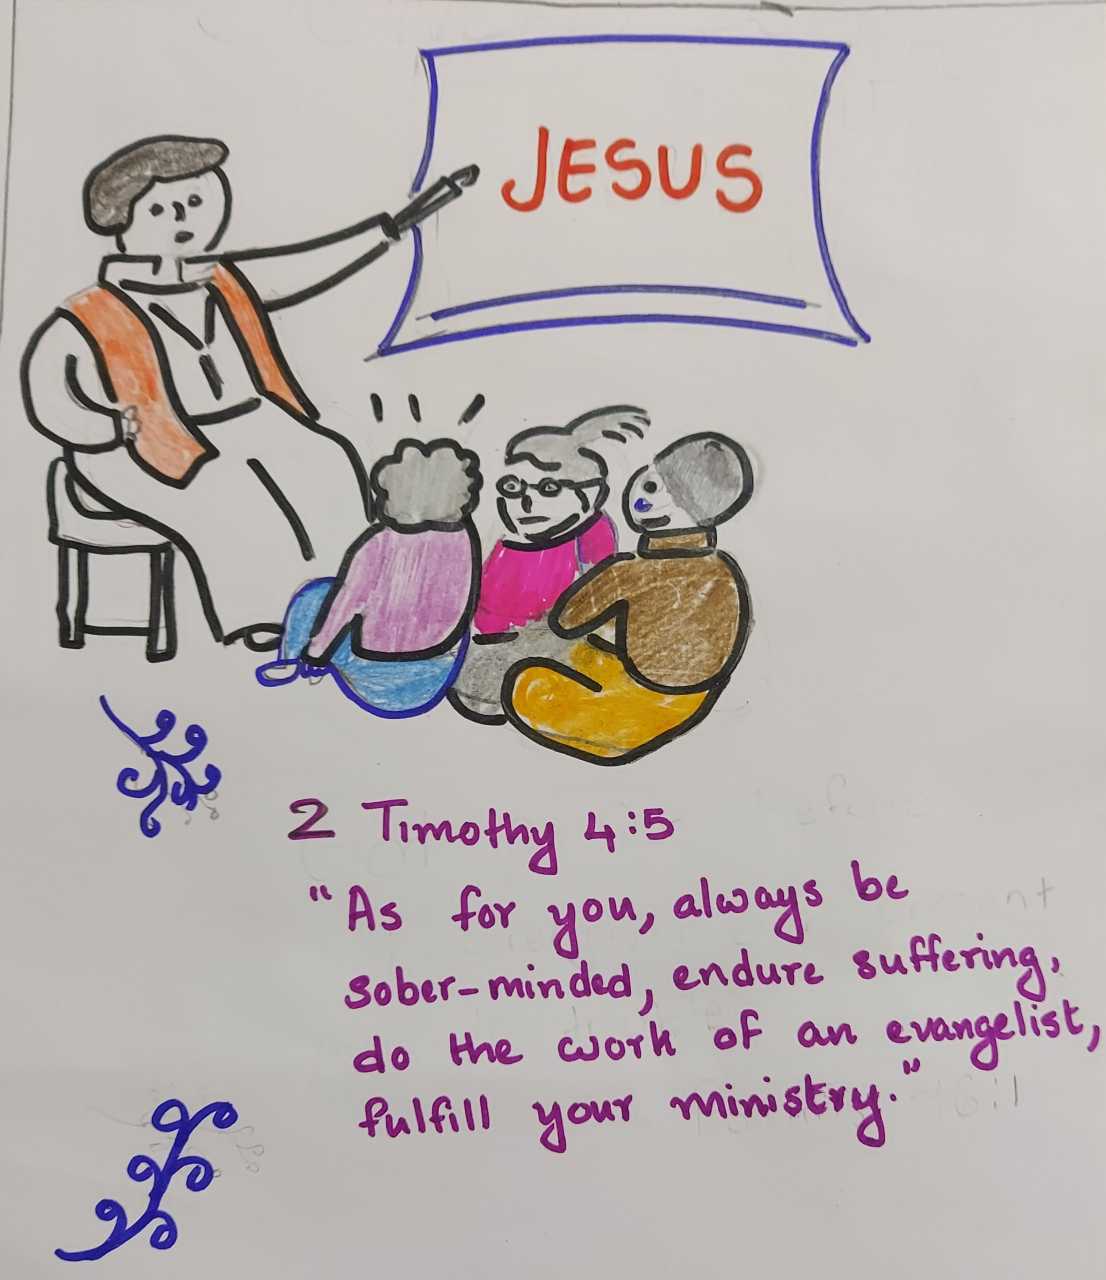 JESUS
2 Timothy 4:5
"As for you, always be
sober-minded, endure suffering,
do the work of an evangelist,
fulfill your ministry."